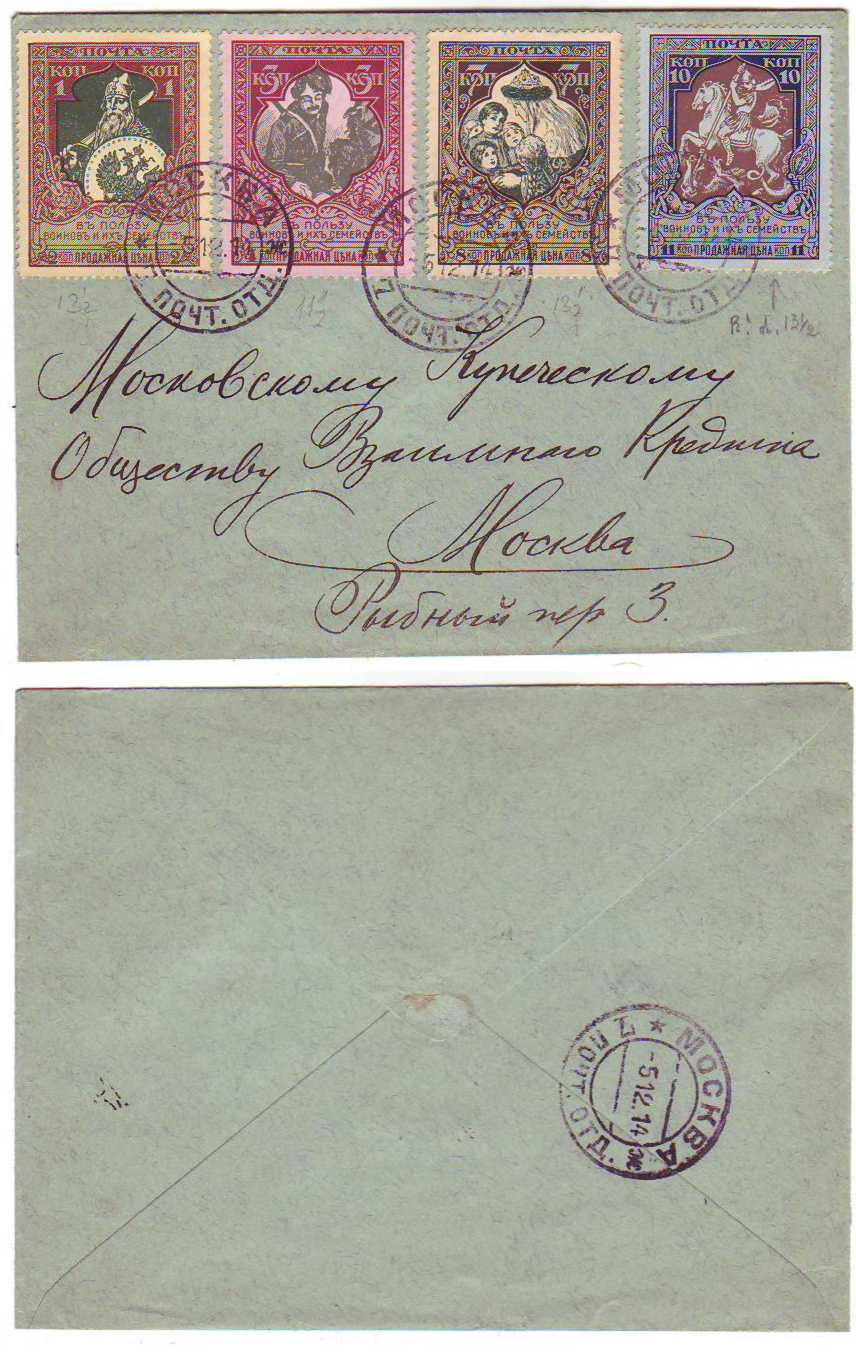 ПОЧТА ПОЧТА ПОЧТА ПОЧТА
КОП КОП КОП КОП КОП КОП КОП КОП
1 1 3 3 7 7 10 10
ВЪ ПОЛЬЗУ ВЪ ПОЛЬЗУ ВЪ ПОЛЬЗУ ВЪ ПОЛЬЗУ
ВОИНОВЪ И ИХЪ СЕМЕЙСТВЪ ВОИНОВЪ И ИХЪ СЕМЕЙСТВЪ ВОИНОВЪ И ИХЪ СЕМЕЙСТВЪ ВОИНОВЪ И ИХЪ СЕМЕЙСТВЪ
2 КОП ПРОДАЖНАЯ ЦѢНА КОП 2 4 КОП ПРОДАЖНАЯ ЦѢНА КОП 4 8 КОП ПРОДАЖНАЯ ЦѢНА КОП 8 11 КОП ПРОДАЖНАЯ ЦѢНА КОП 11
МОСКВА
-5.12.14
ПОЧТ. ОТД.
МОСКВА
-5.12.14
ПОЧТ. ОТД.
ПОЧТ. ОТД.
13½ 11½ 13½ 13½
Московскому Купеческому
Обществу Взаимнаго Кредита
Москва
Рыбный пер 3.
МОСКВА
-5.12.14
ПОЧТ. ОТД.